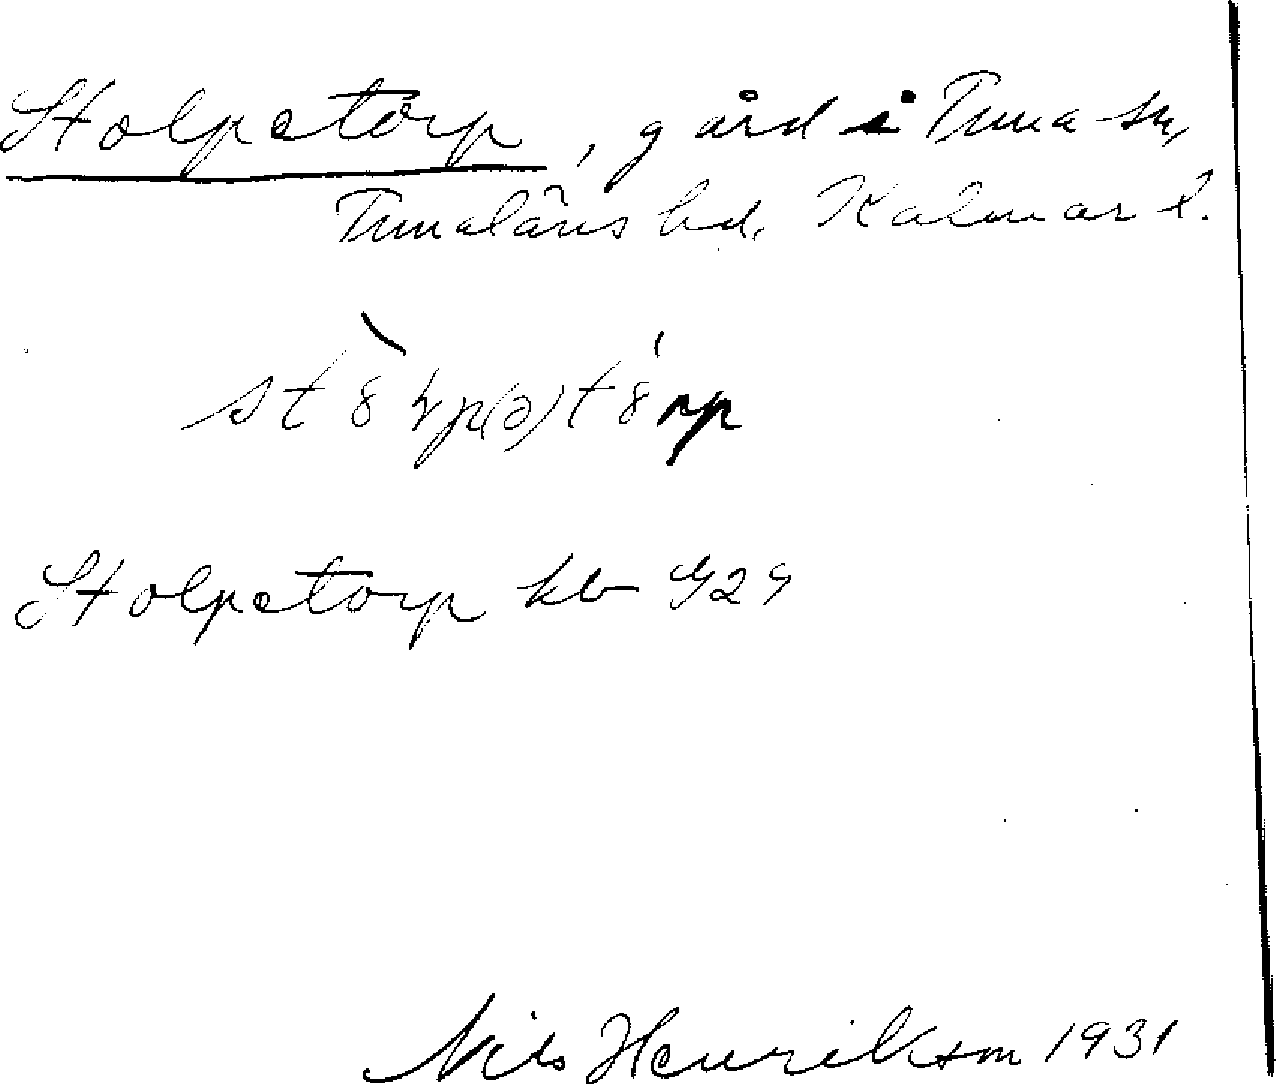 Stolpetorp, gård i Tuna sn,
Tunaläns hd, Kalmar l.
Stolpetorp kb G29
Nils Henrikson 1931